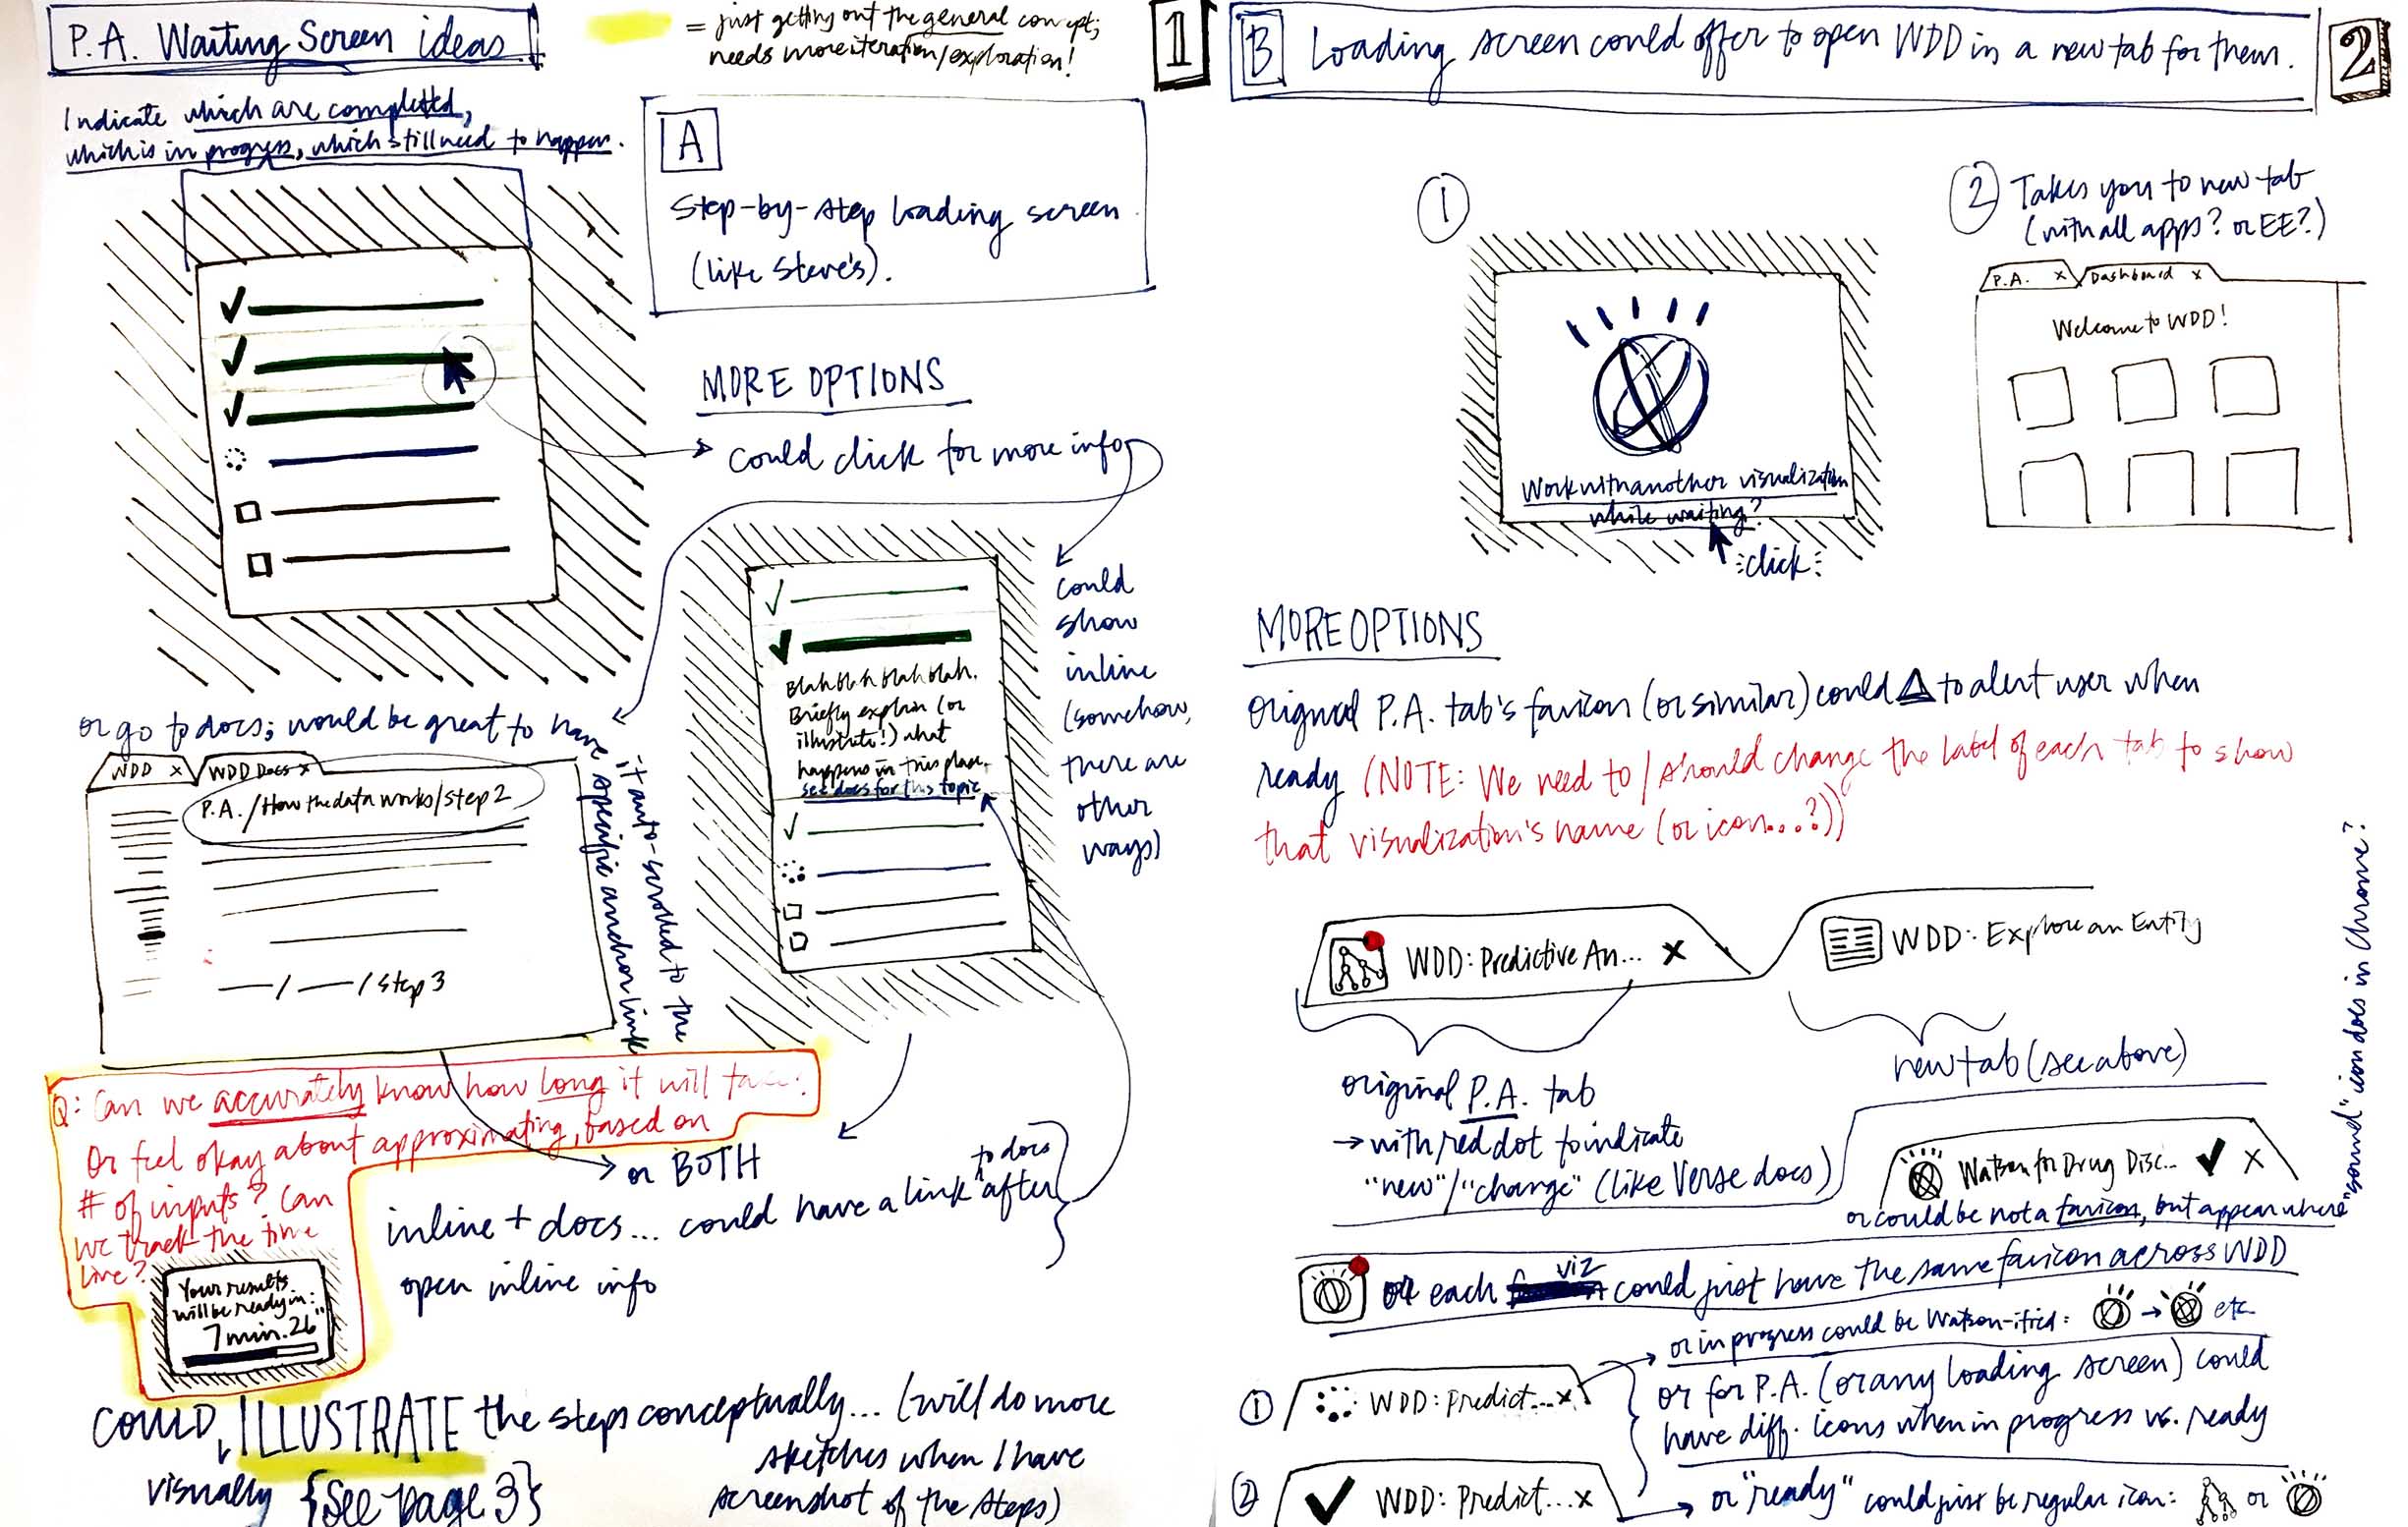 P.A. Waiting Screen ideas
= just getting out the general concept;
needs more iteration/exploration!
1
Indicate which are completed,
which is in progress, which still need to happen.
A
Step-by-step loading screen
(like Steve's).
MORE OPTIONS
could click for more info
could
show
inline
(somehow,
there are
other
ways)
Blah blah blah blah.
Briefly explain (or
illustrate!) what
happens in this phase.
see docs for this topic
or go to docs; would be great to have
it auto-scrolled to the
specific anchor link
WDD x
WDD Docs x
P.A. /How the data works/step 2
/ / step 3
Q: Can we accurately know how long it will take?
Or feel okay about approximating, based on
# of inputs? Can
we track the time
live?
Your results
will be ready in:
7 min. 26"
or BOTH
inline + docs... could have a link to docs after
open inline info
COULD ILLUSTRATE the steps conceptually... (will do more
visually
sketches when I have
screenshot of the steps)
{See page 3}
B
Loading screen could offer to open WDD in a new tab for them.
2
1
Work with another visualization
while waiting?
click
2 Takes you to new tab
(with all apps? or EE?)
P.A. x
Dashboard x
Welcome to WDD!
MORE OPTIONS
original P.A. tab's favicon (or similar) could Δ to alert user when
ready (NOTE: We need to / should change the label of each tab to show
that visualization's name (or icon...?))
WDD: Predictive An... x
WDD: Explore an Entity
original P.A. tab
→ with red dot to indicate
"new"/"change" (like Verse docs)
new tab (see above)
Watson for Drug Disc... ✓ x
or could be not a favicon, but appear where
"sound" icon does in Chrome?
or each viz could just have the same favicon across WDD
or in progress could be Watson-ified: → etc
1 WDD: Predict... x
or for P.A. (or any loading screen) could
have diff. icons when in progress vs. ready
2 ✓ WDD: Predict... x
or "ready" could just be regular icon: or